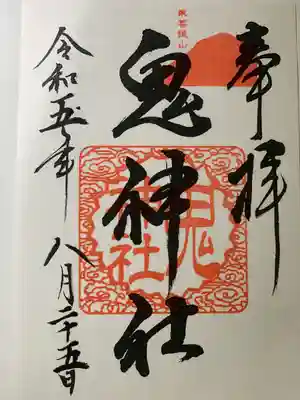 奉拝
鬼神社
鬼神社
令和五年
八月二十五日